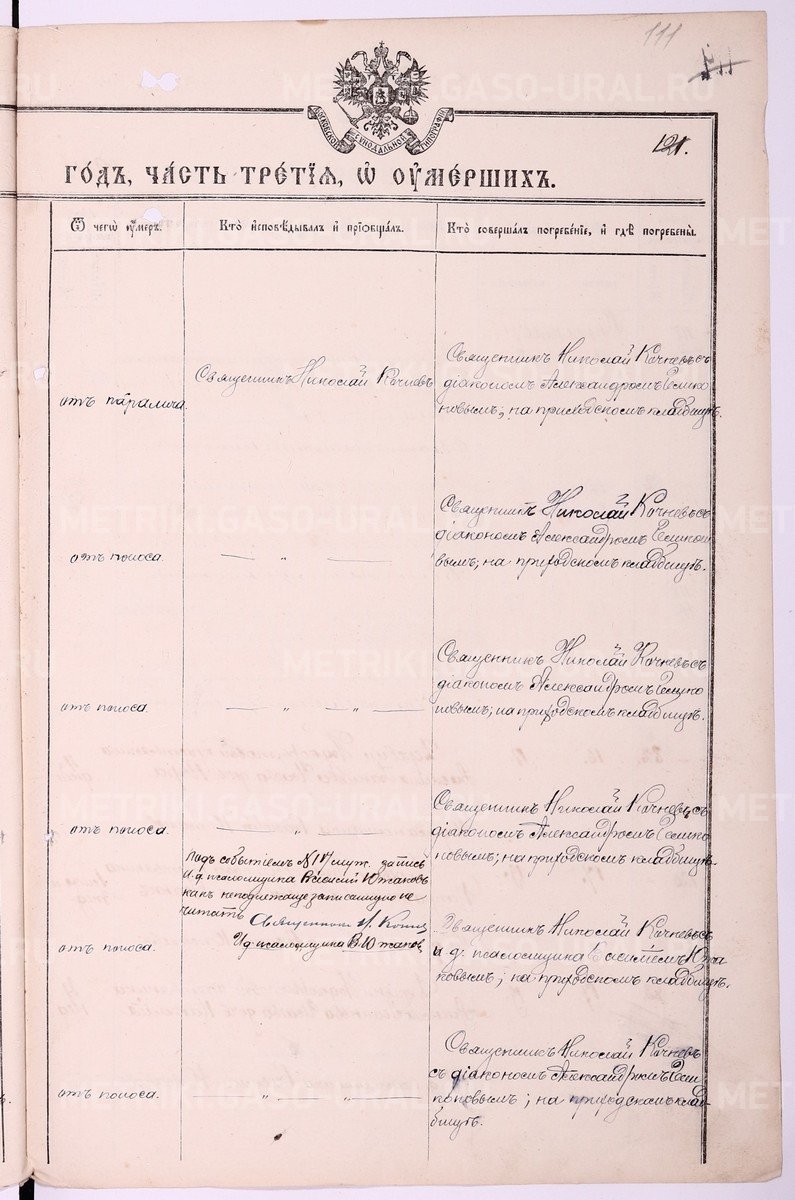 111
121.
МОСКОВСКОЙ СѴНОДАЛЬНОЙ ТИПОГРАФІИ
ГО́ДЪ, ЧА́СТЬ ТРЕ́ТІѦ, Ѡ҆ ОУ҆МЕ́РШИХЪ.
Ѿ чегѡ̀ оу҆́меръ.
Кто̀ и҆сповѣ́дывалъ и҆ прїѡбща́лъ.
Кто̀ соверша́лъ погребе́нїе, и҆ гдѣ̀ погребены̀.
отъ паралича.
Священникъ Николай Кочневъ
Священникъ Николай Кочневъ съ
діакономъ Александромъ
новымъ; на приходскомъ кладбищѣ.
отъ поноса.
— „ —
Священникъ Николай Кочневъ съ
діакономъ Александромъ
вымъ; на приходскомъ кладбищѣ.
отъ поноса.
— „ — „ —
Священникъ Николай Кочневъ съ
діакономъ Александромъ
новымъ; на приходскомъ кладбищѣ.
отъ поноса.
— „ —
Священникъ Николай Кочневъ съ
діакономъ Александромъ
новымъ; на приходскомъ кладбищѣ.
Подъ событіемъ № 17 муж. запись
И. д. псаломщика Василій Южаковъ
какъ неподлежаще записанную не
читать
Священникъ Н. Кочнев
И д псаломщика В Южаковъ
отъ поноса.
Священникъ Николай Кочневъ съ
и. д. псаломщика Василіемъ Южа
ковымъ; на приходскомъ кладбищѣ.
отъ поноса.
— „ — „ —
Священникъ Николай Кочневъ
съ діакономъ Александромъ
новымъ; на приходскомъ клад-
бищѣ.
METRIKI.GASO-URAL.RU